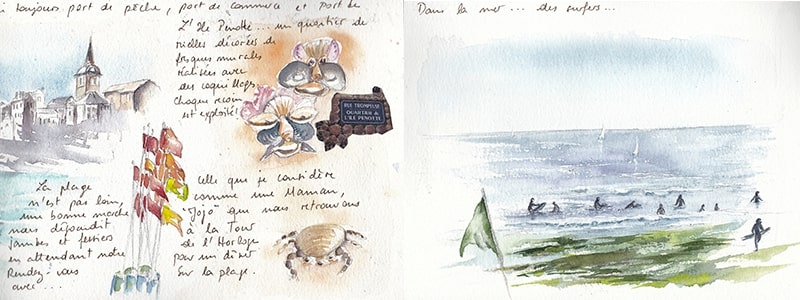 toujours port de pêche, port de commerce et port de
L'Ile Penotte... un quartier de
ruelles décorées de
fresques murales
réalisées avec
des coquillages.
Chaque recoin
est exploité!
RUE TROMPEUSE
QUARTIER de
L'ILE PENOTTE
La plage
n'est pas loin,
une bonne marche
nous dégourdit
jambes et fessiers
en attendant notre
Rendez-vous
avec...
Celle que je considère
comme une Maman,
"Jojo" que nous retrouvons
à la Tour
de l'Horloge
pour un dîner
sur la plage.
Dans la mer... des surfers...